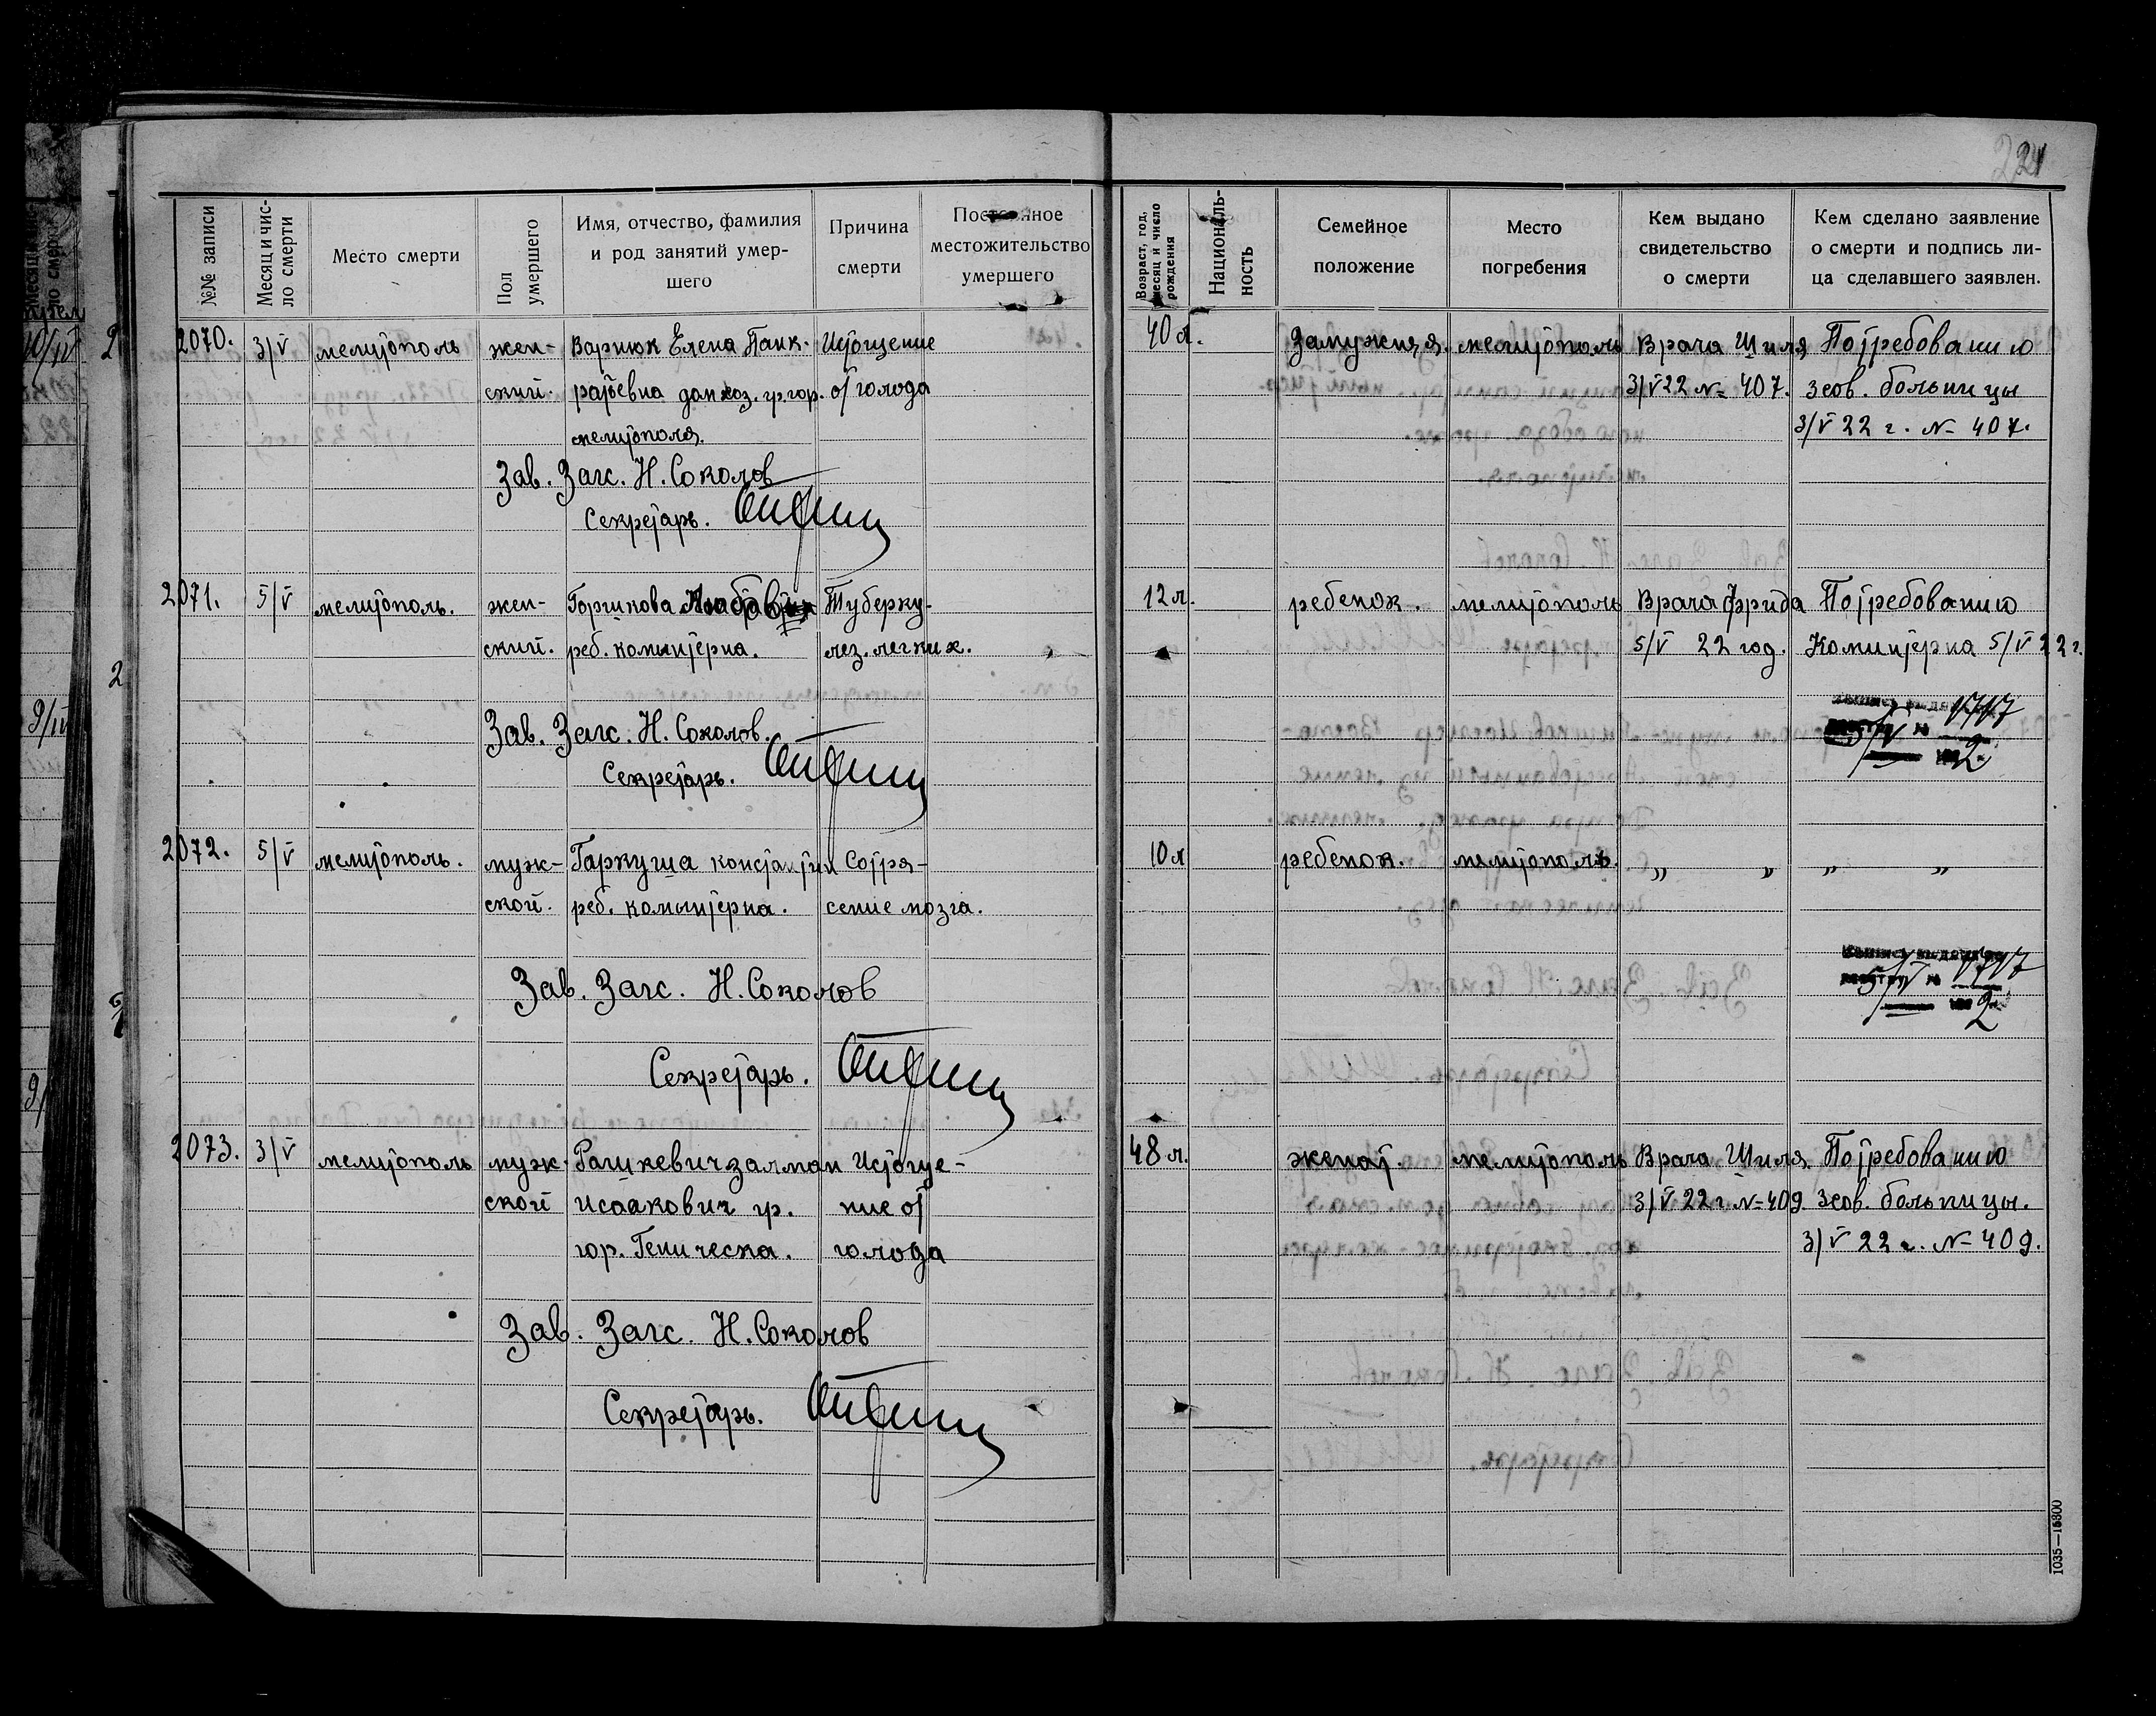 221
№№ записи
Месяц и чис-
ло смерти
Место смерти
Пол
умершего
Имя, отчество, фамилия
и род занятий умер-
шего
Причина
смерти
Постоянное
местожительство
умершего
Возраст, год,
месяц и число
рождения
Националь-
ность
Семейное
положение
Место
погребения
Кем выдано
свидетельство
о смерти
Кем сделано заявление
о смерти и подпись ли-
ца сделавшего заявлен.
2070. 3/V мелитополь жен- Варнюк Елена Панк- Истощение 40 л. Замужняя. мелитополь Врача Шиля Потребованию
ский. ратьевна дом хоз. гр. гор. от голода 3/V 22 № 407. 3 сов. больницы
мелитополя. 3/V 22 г. № 407.
Зав. Загс. Н. Соколов
Секретарь.
2071. 5/V мелитополь. жен- Горшкова Тубер­ку- 12 л. ребенок. мелитополь Врача Фрида Потребованию
ский. реб. коминтерна. лез. легких. 5/V 22 год. Коминтерна 5/V 22 г.
Зав. Загс. Н. Соколов.
Секретарь.
1717
5/V № 2
2072. 5/V мелитополь. муж- Гаркуша константин Сотря- 10 л ребенок. мелитополь. „ „ „ „
ской. реб. коминтерна. сение мозга.
Зав. Загс. Н. Соколов
1717
5/V № 2
Секретарь.
2073. 3/V мелитополь муж- Рашкевич залман Истоще- 48 л. женат. мелитополь Врача Шиля. Потребованию
ской исаакович гр. ние от 3/V 22 г. № 409. 3 сов. больницы.
гор. Геническа. голода 3/V 22 г. № 409.
Зав. Загс. Н. Соколов
Секретарь.
1035—15800